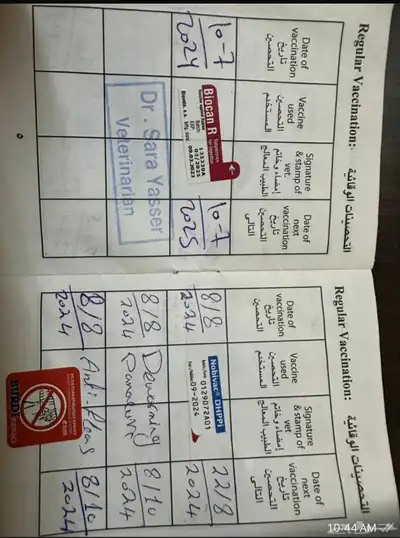 Regular Vaccination:- التحصينات الوقائية
Date of vaccination تاريخ التحصين
Vaccine used التحصين المستخدم
Signature & stamp of vet. إمضاء وخاتم الطبيب المعالج
Date of next vaccination تاريخ التحصين التالى
10-7 2024
Biocan R
10-7 2025
Dr. Sara Yasser
Veterinarian
Regular Vaccination: التحصينات الوقائية
Date of vaccination تاريخ التحصين
Vaccine used التحصين المستخدم
Signature & stamp of vet إمضاء وخاتم الطبيب المعالج
Date of next vaccination تاريخ التحصين التالى
8/8 2024
Nobivac® DHPPi
0129072A01
09-2024
22/8 2024
8/8 2024
Deworming
8/10 2024
8/8 2024
Anti-fleas
8/10 2024
10:44 AM